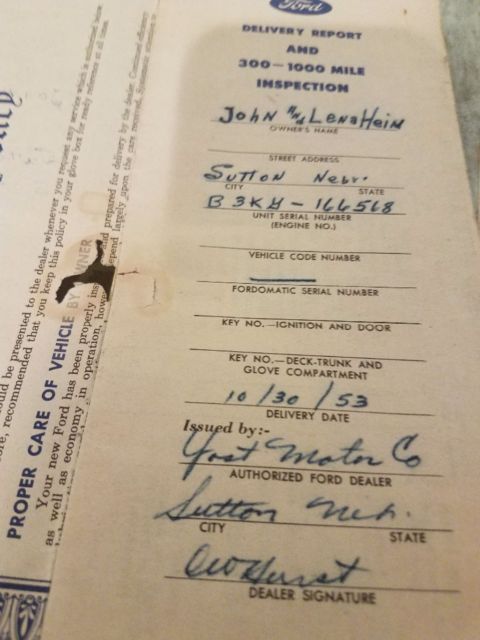 Ford
DELIVERY REPORT
AND
300—1000 MILE
INSPECTION
John and Lena Hein
OWNER'S NAME
STREET ADDRESS
Sutton Nebr.
CITY STATE
B3KH-166568
UNIT SERIAL NUMBER
(ENGINE NO.)
VEHICLE CODE NUMBER
FORDOMATIC SERIAL NUMBER
KEY NO.—IGNITION AND DOOR
KEY NO.—DECK-TRUNK AND
GLOVE COMPARTMENT
10/30/53
DELIVERY DATE
Issued by:-
Yost Motor Co
AUTHORIZED FORD DEALER
Sutton Neb.
CITY STATE
DEALER SIGNATURE
be presented to the dealer whenever you request any service which is authorized
recommended that you keep this policy in your glove box for ready reference at all times.
PROPER CARE OF VEHICLE BY OWNER
Your new Ford has been properly and prepared for delivery by the dealer. Continued efficiency
as well as economy in operation, depend largely upon the care required. Systematic attention